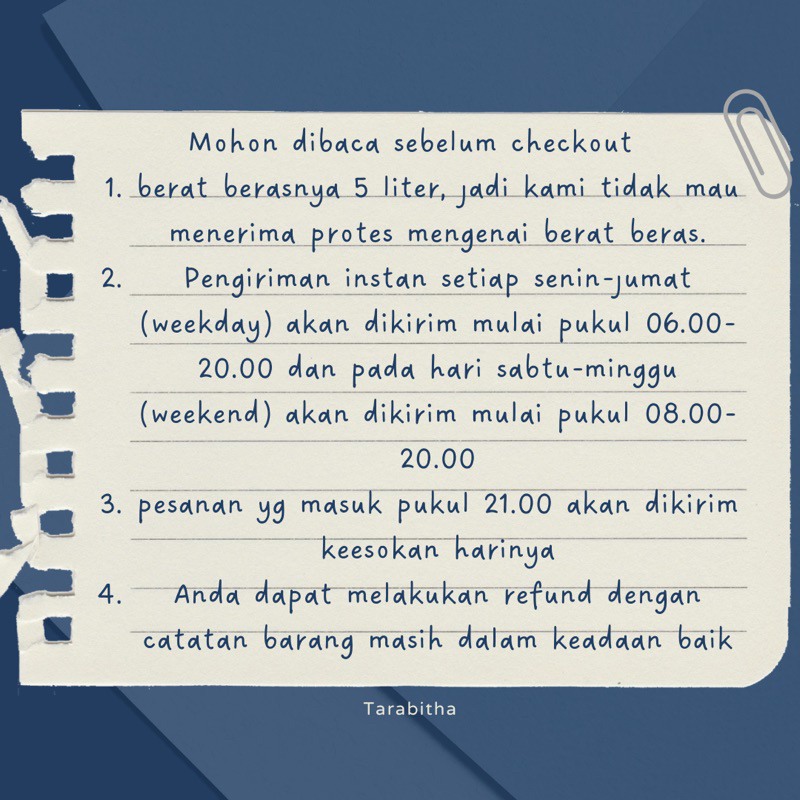 Mohon dibaca sebelum checkout
1. berat berasnya 5 liter, jadi kami tidak mau
menerima protes mengenai berat beras.
2. Pengiriman instan setiap senin-jumat
(weekday) akan dikirim mulai pukul 06.00-
20.00 dan pada hari sabtu-minggu
(weekend) akan dikirim mulai pukul 08.00-
20.00
3. pesanan yg masuk pukul 21.00 akan dikirim
keesokan harinya
4. Anda dapat melakukan refund dengan
catatan barang masih dalam keadaan baik
Tarabitha